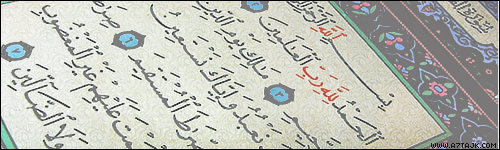 بِسْمِ اللَّهِ
الْحَمْدُ لِلَّهِ رَبِّ الْعَالَمِينَ ٢
٣ مَالِكِ يَوْمِ الدِّينِ
نَعْبُدُ وَإِيَّاكَ نَسْتَعِينُ
صِّرَاطَ الْمُسْتَقِيمَ ٦ صِرَاطَ
عَلَيْهِمْ غَيْرِ الْمَغْضُوبِ
وَلَا الضَّالِّينَ ٧
WWW.AZTAJK.COM